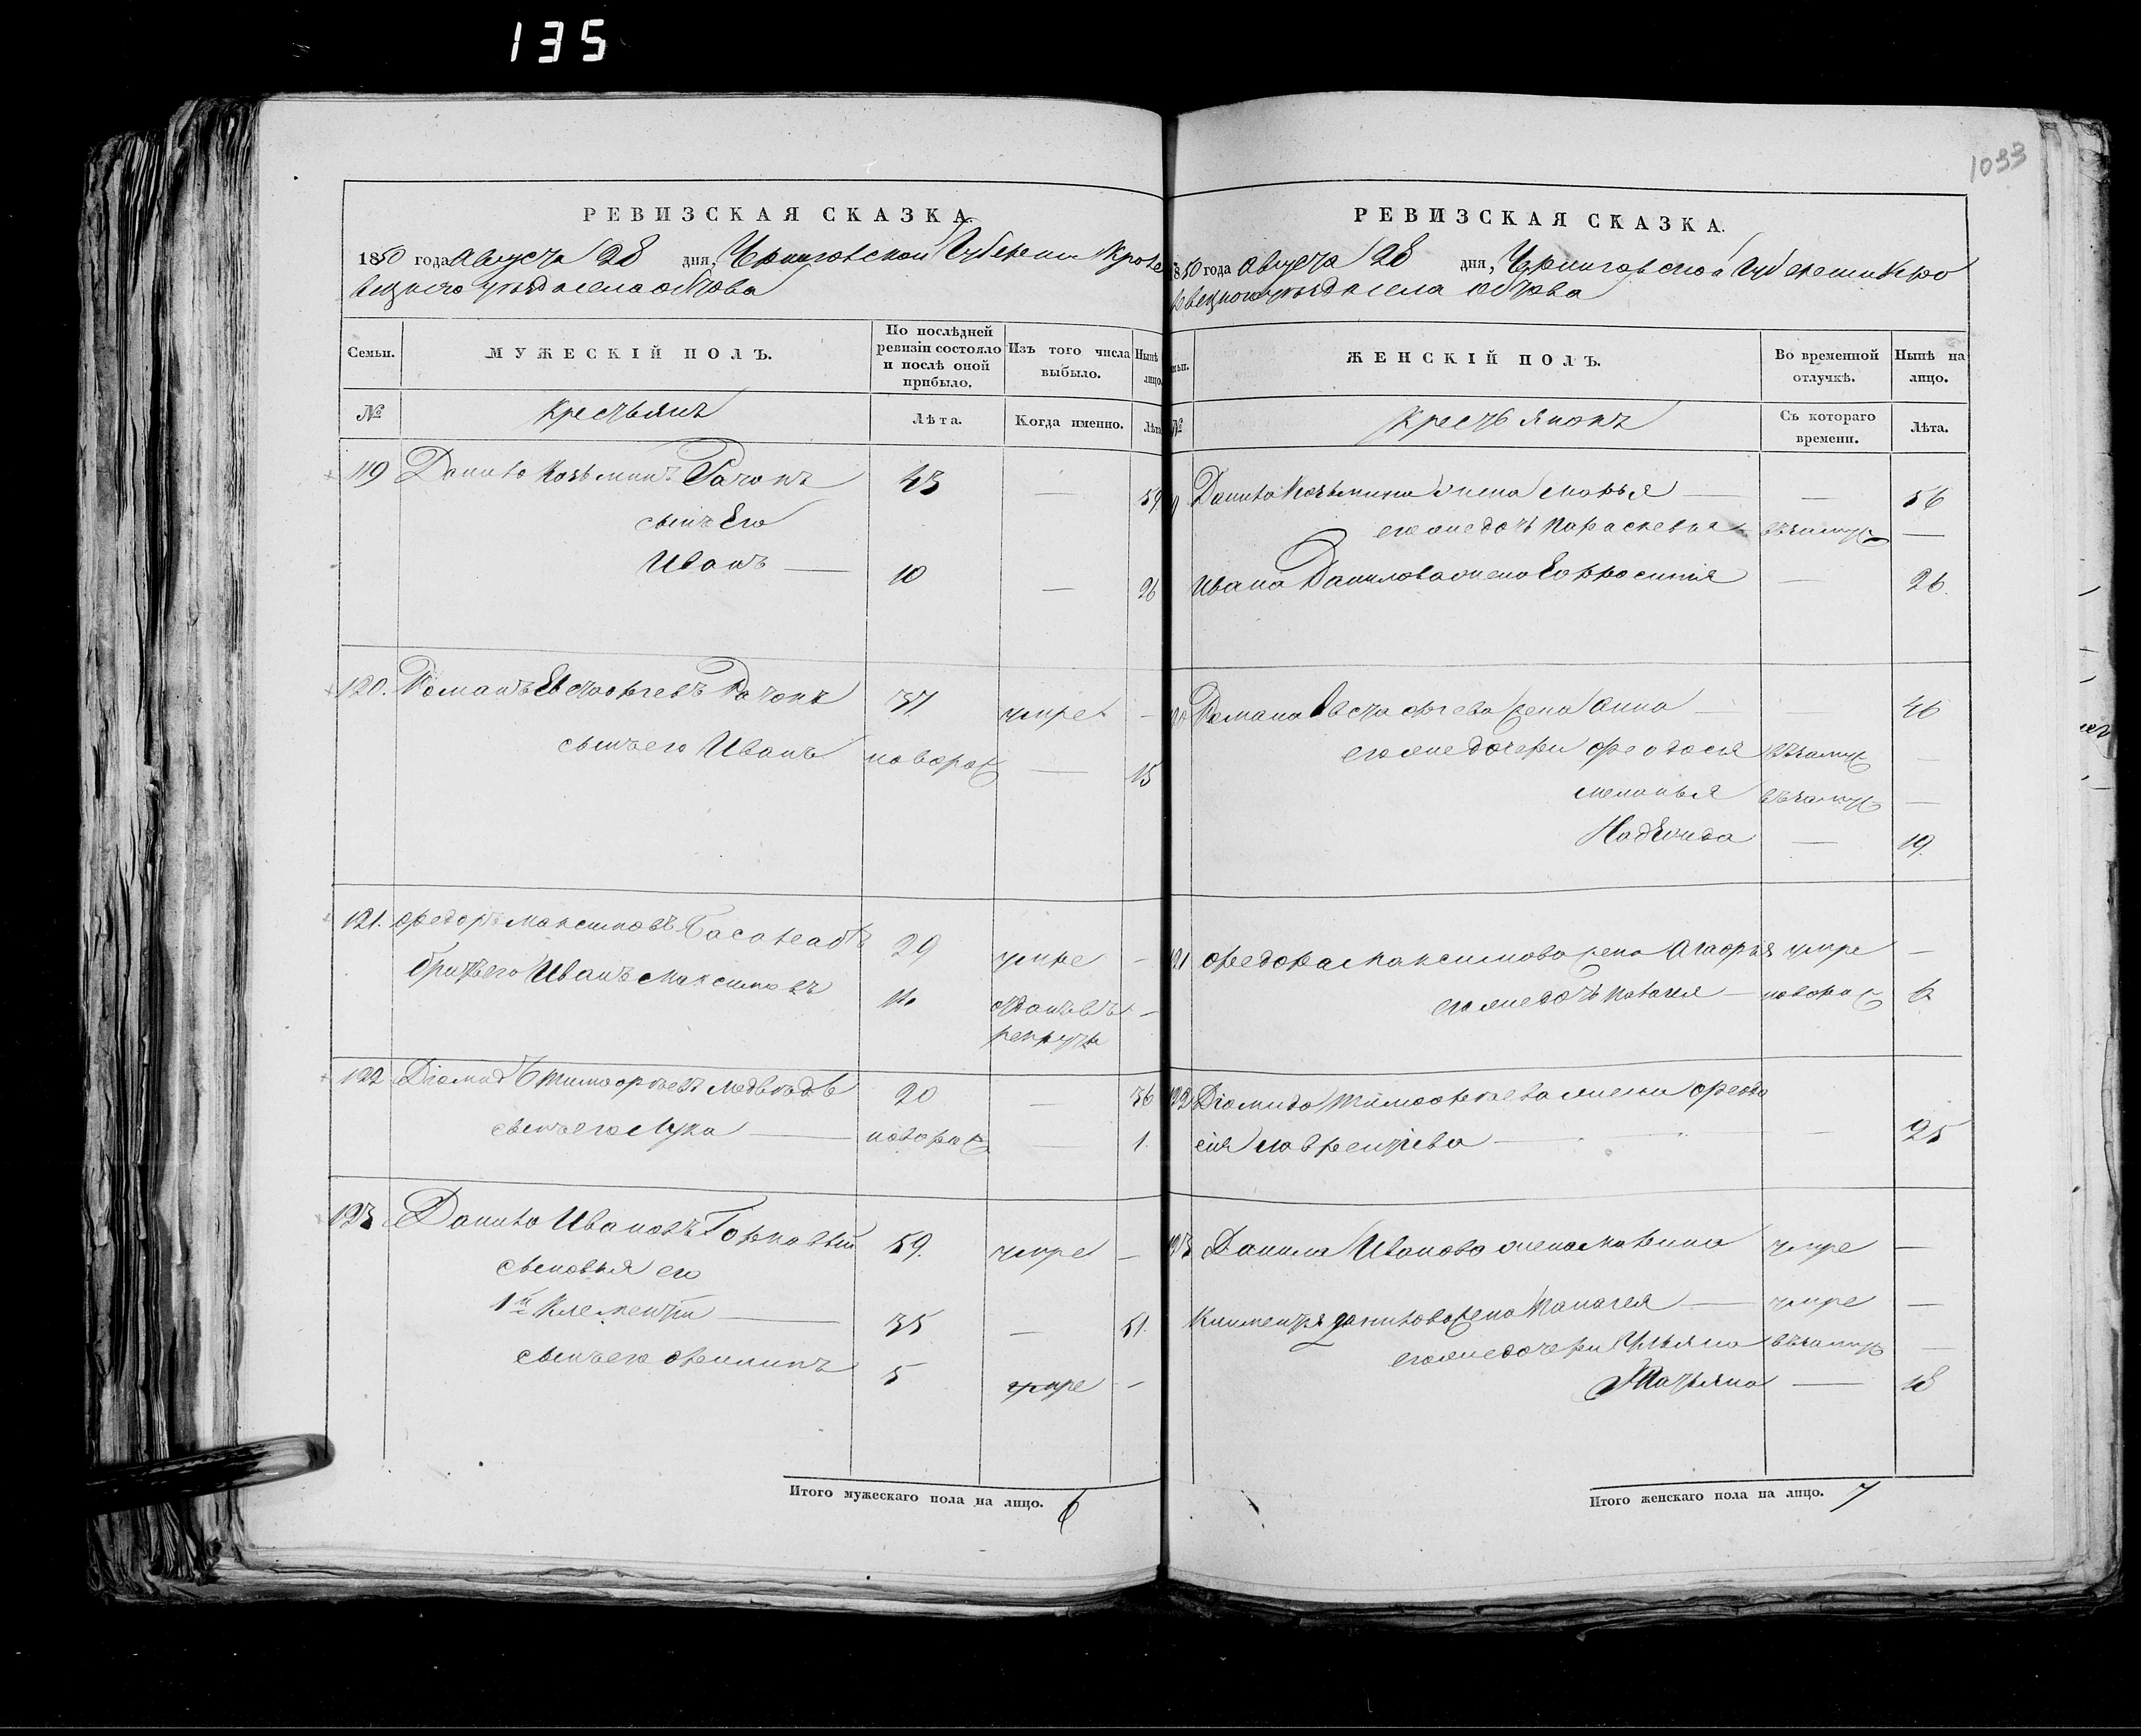 135
1033
РЕВИЗСКАЯ СКАЗКА.
1850 года Августа 28 дня, Черниговской Губернии Кроле
вецкого уѣзда села
Семьи.
МУЖЕСКІЙ ПОЛЪ.
По послѣдней ревизіи состояло и послѣ оной прибыло.
Изъ того числа выбыло.
Нынѣ лицо.
№
Крестьянъ
Лѣта.
Когда именно.
Лѣта
119 Данило Козьминъ Рачокъ 43 — 59
сынъ Его
Иванъ — 10 — 26
120. Романъ Евстафіевъ Рачокъ 37 умре —
сынъ его Иванъ новорож — 15
121. Федоръ Максимовъ 29 умре —
братъ его Иванъ Максимовъ отданъ въ —
рекруты
122 Діомидъ Тимофѣевъ Медвѣдь 20 — 36
сынъ его Лука — новорож — 1.
123 Данило Ивановъ 59. умре —
сыновья его
1й Климентій — 35 — 51.
сынъ его Филипъ 5 умре —
Итого мужескаго пола на лицо. 6
РЕВИЗСКАЯ СКАЗКА.
1850 года Августа 28 дня, Черниговской Губернии Кро
левецкого уѣзда села
ЖЕНСКІЙ ПОЛЪ.
Во временной отлучкѣ.
Нынѣ на лицо.
№
Крестьянокъ
Съ котораго времени.
Лѣта.
Данила Козьмина жена Марья — — 56
его же дочь Параскевия въ замуж —
Ивана Данилова жена Ефросинія — 26.
Романа Евстафіева жена Анна — — 46
его же дочери Феодосія въ замуж —
Меланья въ замуж —
Надежда — 19.
121 Федора Максимова жена Агафья умре —
его же дочь Палагея — новорож
122 Діомида Тимофѣева жена Феодо
сія Лаврентіева — — 25
123 Данила Иванова жена Марина умре —
Климентія Данилова жена — умре —
его же дочери Ульяна въ замуж —
Татьяна — 18
Итого женскаго пола на лицо. 7